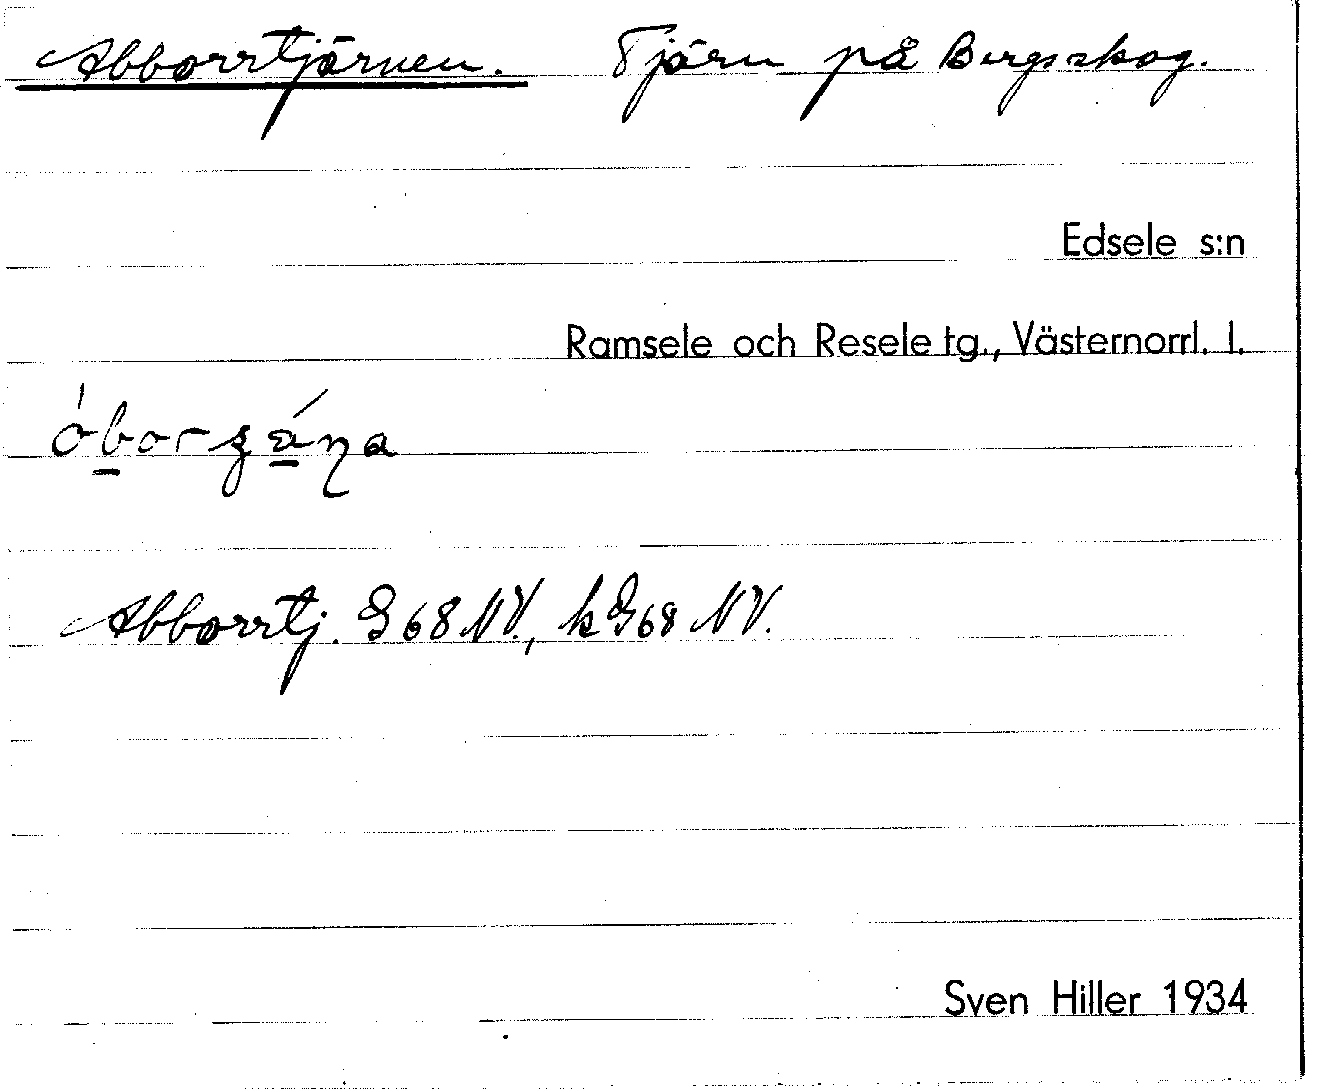 Abborrtjärnen. Tjärn på Bergsskog.
Edsele s:n
Ramsele och Resele tg., Västernorrl. l.
Abborrtj. G 68 NV., k G 68 NV.
Sven Hiller 1934